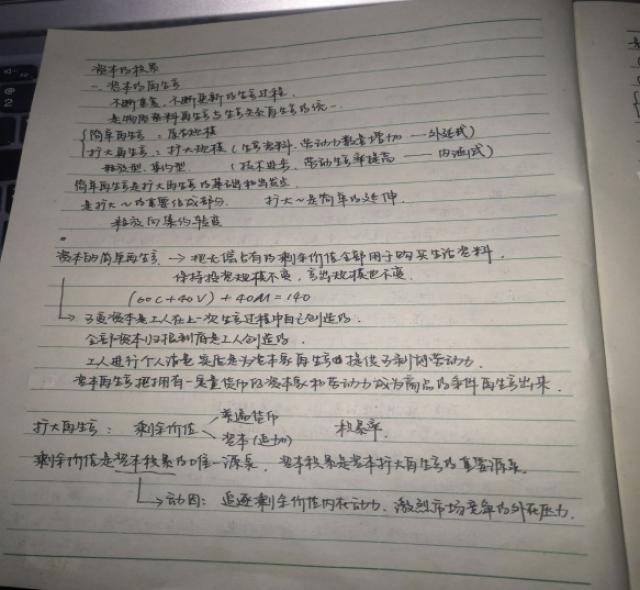 资本的积累
一、资本的再生产
不断重复、不断更新的生产过程.
是物质资料再生产与生产关系再生产的统一.
简单再生产:原有规模
扩大再生产:扩大规模(生产资料、劳动力数量增加——外延式)
粗放型、集约型 (技术进步、劳动生产率提高——内涵式)
简单再生产是扩大再生产的基础和出发点
是扩大~的重要组成部分. 扩大~是简单的延伸.
粗放向集约转变
资本的简单再生产 → 把无偿占有的剩余价值全部用于购买生活资料.
保持投资规模不变,产出规模也不变.
(60C+40V)+40M=140
→ 可变资本是工人在上一次生产过程中自己创造的.
全部资本归根到底是工人创造的.
工人进行个人消费实质是为资本家再生产提供可剥削劳动力.
资本再生产把拥有一定量货币的资本家和劳动力成为商品的条件再生产出来.
扩大再生产: 剩余价值 普通货币 资本(追加) 积累率.
剩余价值是资本积累的唯一源泉,资本积累是资本扩大再生产的重要源泉.
→ 动因: 追逐剩余价值内在动力、激烈市场竞争的外在压力.